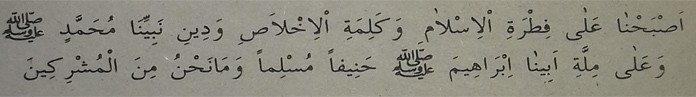 اَصْبَحْنَا عَلٰى فِطْرَةِ الْاِسْلَامِ وَكَلِمَةِ الْاِخْلَاصِ وَدِينِ نَبِيِّنَا مُحَمَّدٍ ﷺ
وَعَلٰى مِلَّةِ اَبِينَا اِبْرَاهِيمَ ﷺ حَنِيفاً مُسْلِماً وَمَانَحْنُ مِنَ الْمُشْرِكِينَ